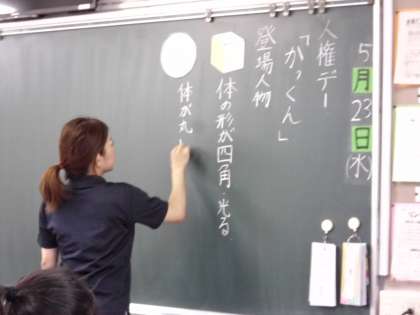 5月23日(水)
人権デー
「かっくん」
登場人物
体の形が四角・光る
体が丸